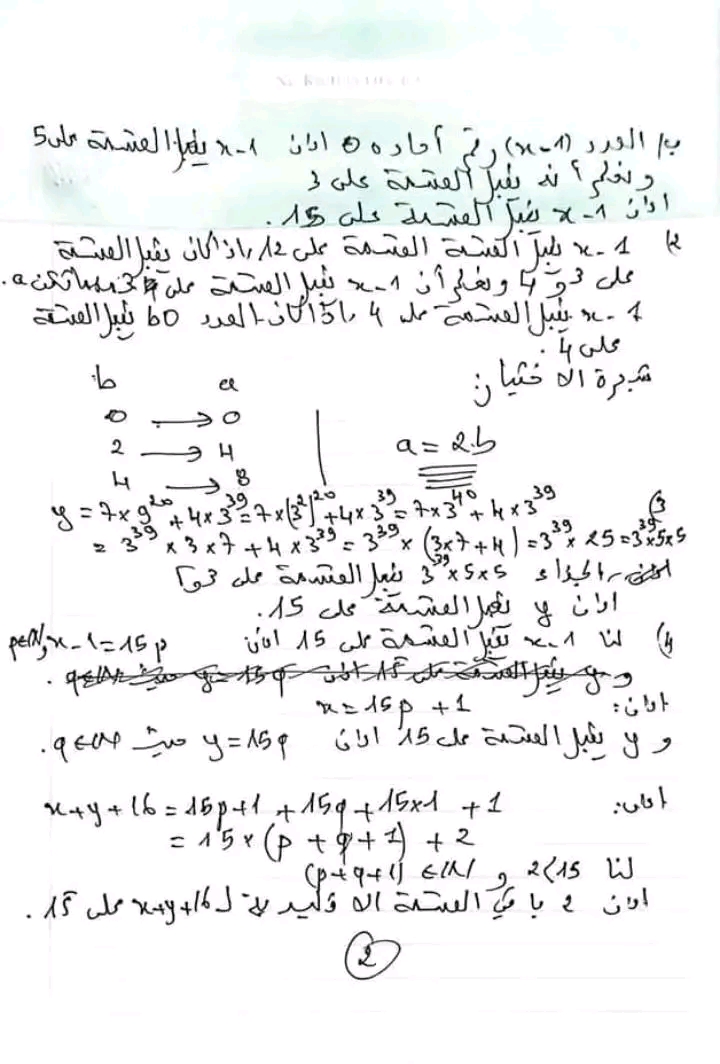 ب/ العدد (x-1) رقم آحاده 0 اذن x-1 يقبل القسمة على 5
ونعلم أنه يقبل القسمة على 3
اذن x-1 يقبل القسمة على 15.
2) x-1 يقبل القسمة على 12 إذا كان يقبل القسمة
على 3 و 4 ونعلم أن x-1 يقبل القسمة على 3
x-1 يقبل القسمة على 4 إذا كان العدد b0 يقبل القسمة
على 4.
شجرة الاختيار:
b a
0 → 0
2 → 4 a = 2b
4 → 8
3) y = 7×9^20 + 4×3^39 = 7×(3^2)^20 + 4×3^39 = 7×3^40 + 4×3^39
= 3^39 × 3 × 7 + 4 × 3^39 = 3^39 × (3×7+4) = 3^39 × 25 = 3^39×5×5
الجذاء 3^39×5×5 يقبل القسمة على 3 و
اذن y يقبل القسمة على 15.
4) لنا x-1 يقبل القسمة على 15 اذن x-1=15p و p∈ℕ
و y يقبل القسمة على 15 اذن y=15q حيث q∈ℕ.
اذن: x=15p+1
و y يقبل القسمة على 15 اذن y=15q حيث q∈ℕ.
اذن: x+y+16 = 15p+1 + 15q + 15×1 + 1
= 15×(p+q+1) + 2
لنا 2<15 و (p+q+1)∈ℕ
اذن 2 باقي القسمة الاقليدية لـ x+y+16 على 15.
2